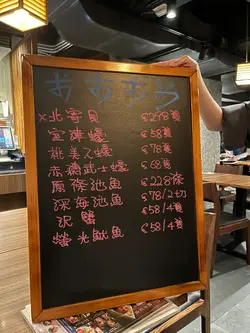 おすすめ
×北寄貝 $278隻
宜陣蠔 $58隻
桃美人蠔 $78隻
赤霞武士蠔 $68隻
原條池魚 $228條
深海池魚 $78/2切
沢蟹 $58/4隻
螢光魷魚 $58/4隻